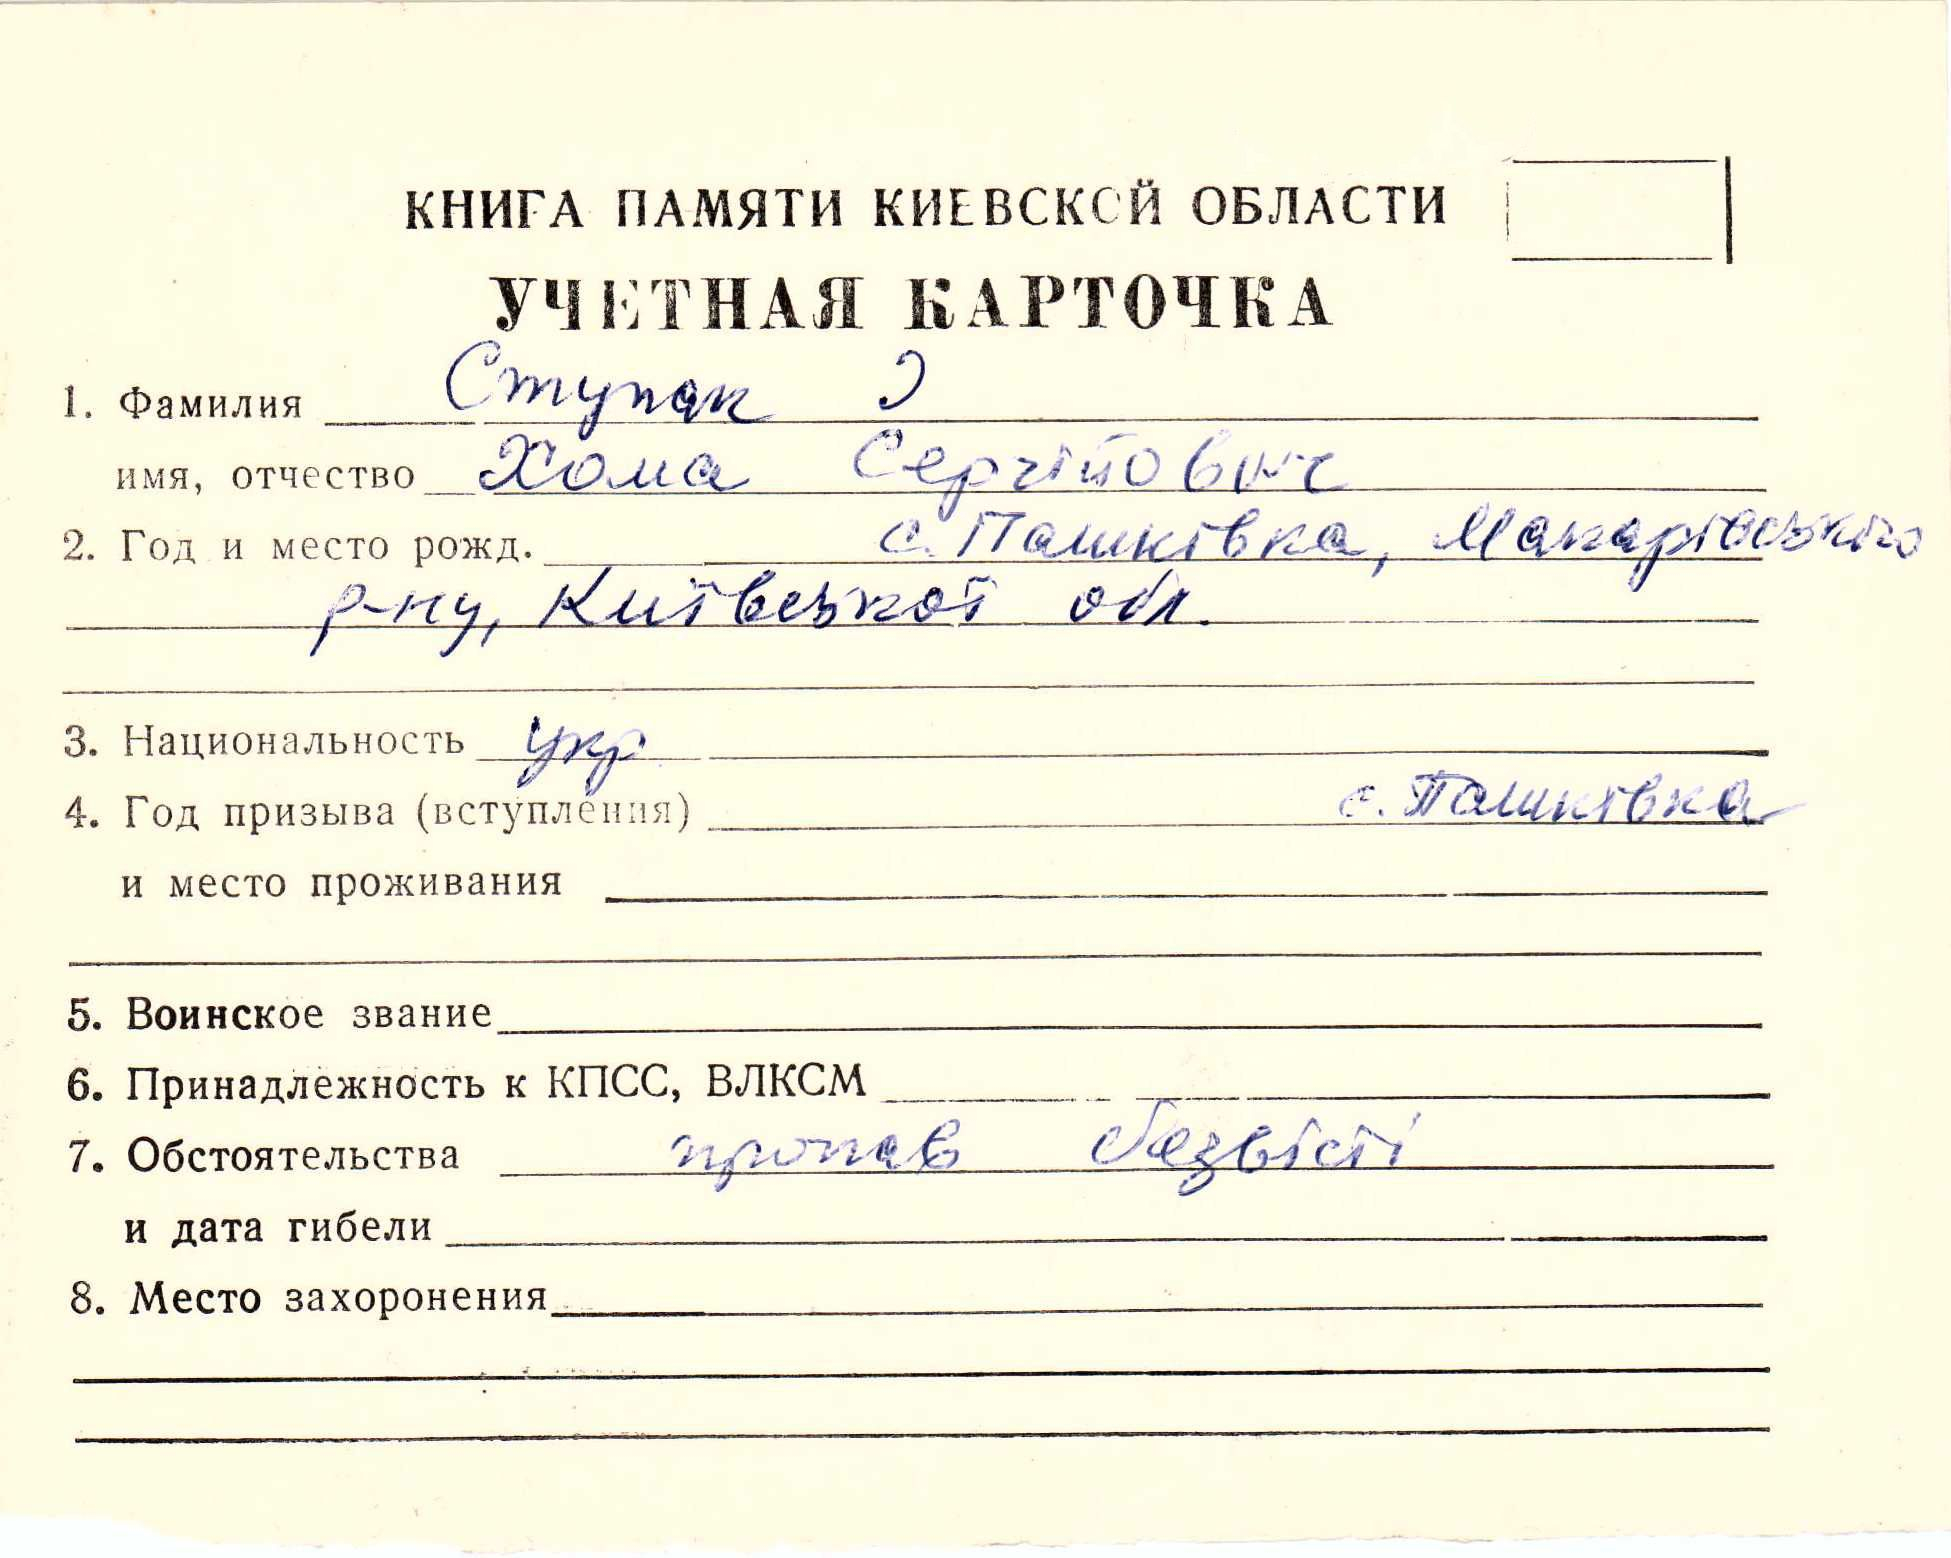 КНИГА ПАМЯТИ КИЕВСКОЙ ОБЛАСТИ
УЧЕТНАЯ КАРТОЧКА
1. Фамилия Ступак
имя, отчество Хома Сергійович
2. Год и место рожд. с. Пашківка, Макарівського
р-ну, Київської обл.
3. Национальность укр.
4. Год призыва (вступления) с. Пашківка
и место проживания
5. Воинское звание
6. Принадлежность к КПСС, ВЛКСМ
7. Обстоятельства пропав безвісті
и дата гибели
8. Место захоронения